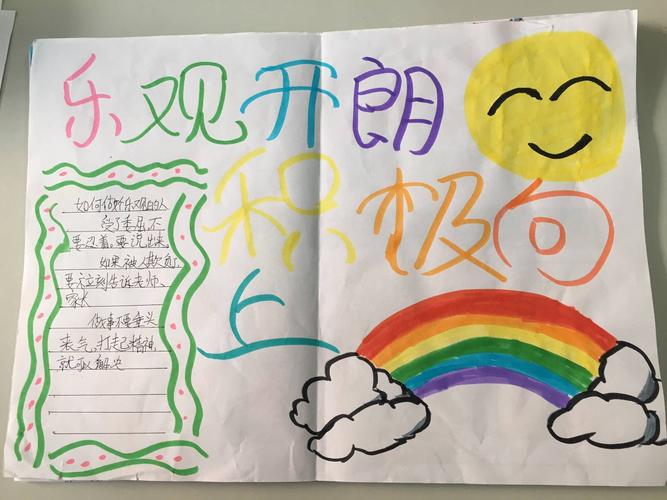 乐观开朗
积极向
上
如何做好乐观的人
受了委屈不
要忍着,要说出来,
如果被人欺负,
要立刻告诉老师、
家长
做事不要垂头
丧气,打起精神,
就可以解决